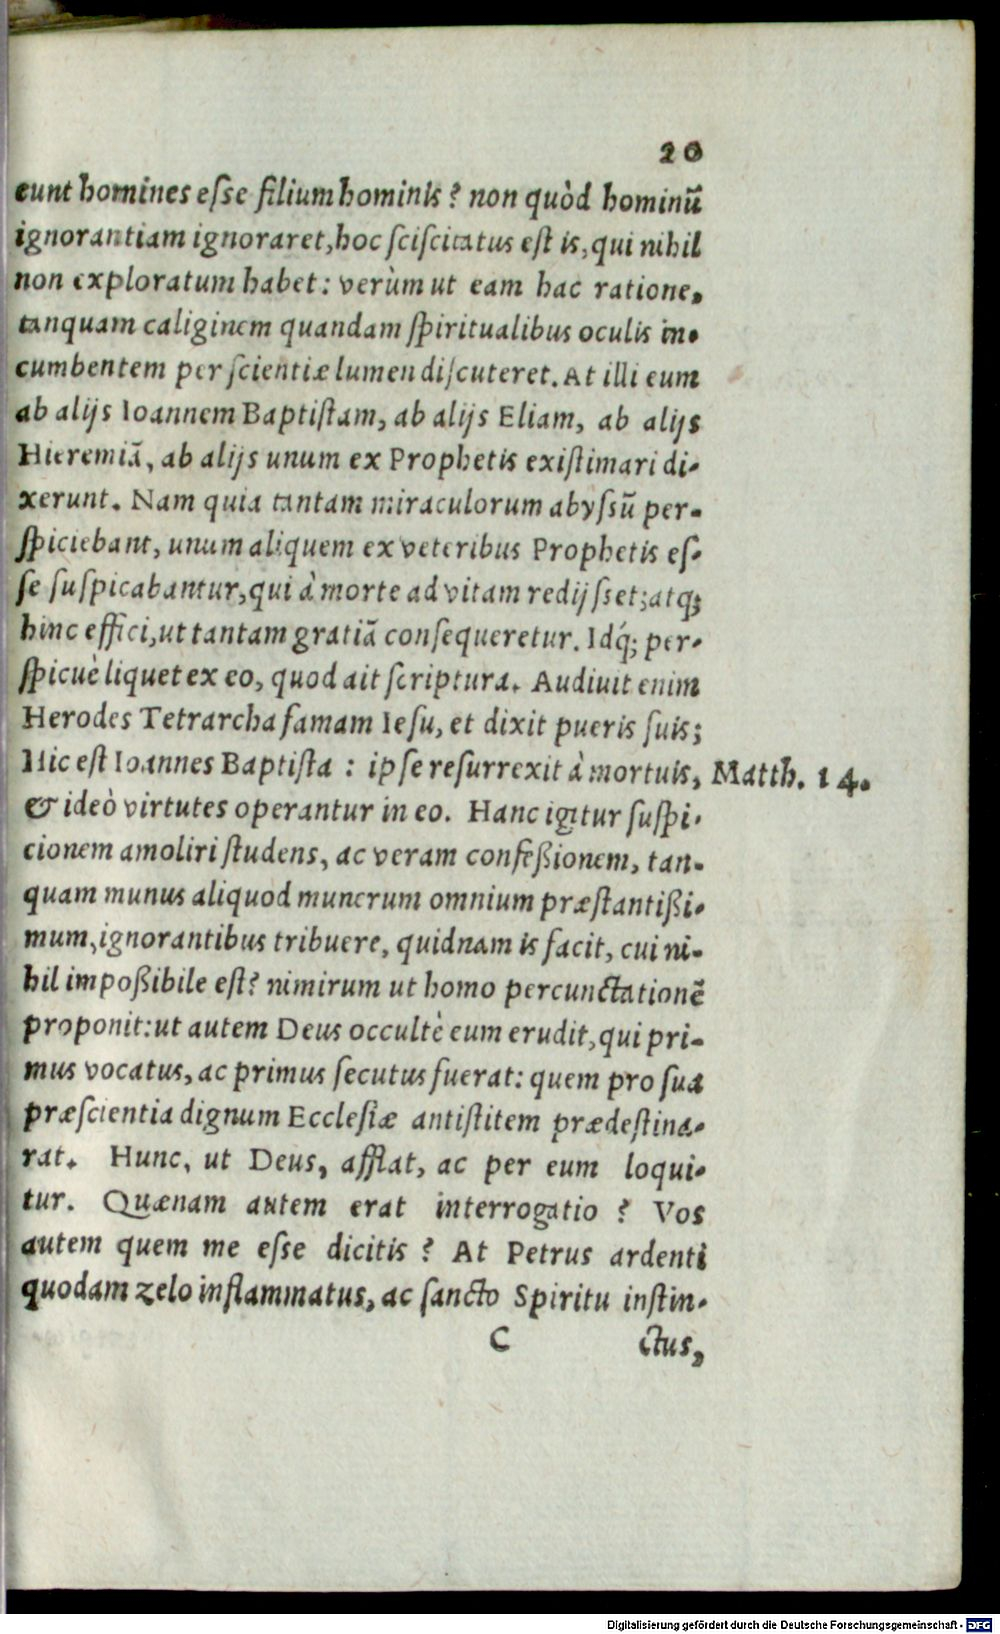 20
cunt homines eſſe filium hominis? non quòd hominū
ignorantiam ignoraret, hoc ſciſcitatus eſt is, qui nihil
non exploratum habet: verùm ut eam hac ratione,
tanquam caliginem quandam ſpiritualibus oculis in-
cumbentem per ſcientiæ lumen diſcuteret. At illi eum
ab alijs Ioannem Baptiſtam, ab alijs Eliam, ab alijs
Hieremiā, ab alijs unum ex Prophetis exiſtimari di-
xerunt. Nam quia tantam miraculorum abyſſū per-
ſpiciebant, unum aliquem ex veteribus Prophetis eſ-
ſe ſuſpicabantur, qui à morte ad vitam redijſſet; atq;
hinc effici, ut tantam gratiā conſequeretur. Idq́; per-
ſpicuè liquet ex eo, quod ait ſcriptura. Audiuit enim
Herodes Tetrarcha famam Ieſu, et dixit pueris ſuis;
Hic eſt Ioannes Baptiſta : ipſe reſurrexit à mortuis, Matth. 14.
& ideò virtutes operantur in eo. Hanc igitur ſuſpi-
cionem amoliri ſtudens, ac veram confeßionem, tan-
quam munus aliquod munerum omnium præſtantißi-
mum, ignorantibus tribuere, quidnam is facit, cui ni-
hil impoßibile eſt? nimirum ut homo percunctationē
proponit: ut autem Deus occultè eum erudit, qui pri-
mus vocatus, ac primus ſecutus fuerat: quem pro ſua
præſcientia dignum Eccleſiæ antiſtitem prædeſtina-
rat. Hunc, ut Deus, afflat, ac per eum loqui-
tur. Quænam autem erat interrogatio ? Vos
autem quem me eſſe dicitis ? At Petrus ardenti
quodam zelo inflammatus, ac ſancto Spiritu inſtin-
C ctus,
Digitalisierung gefördert durch die Deutsche Forschungsgemeinschaft - DFG